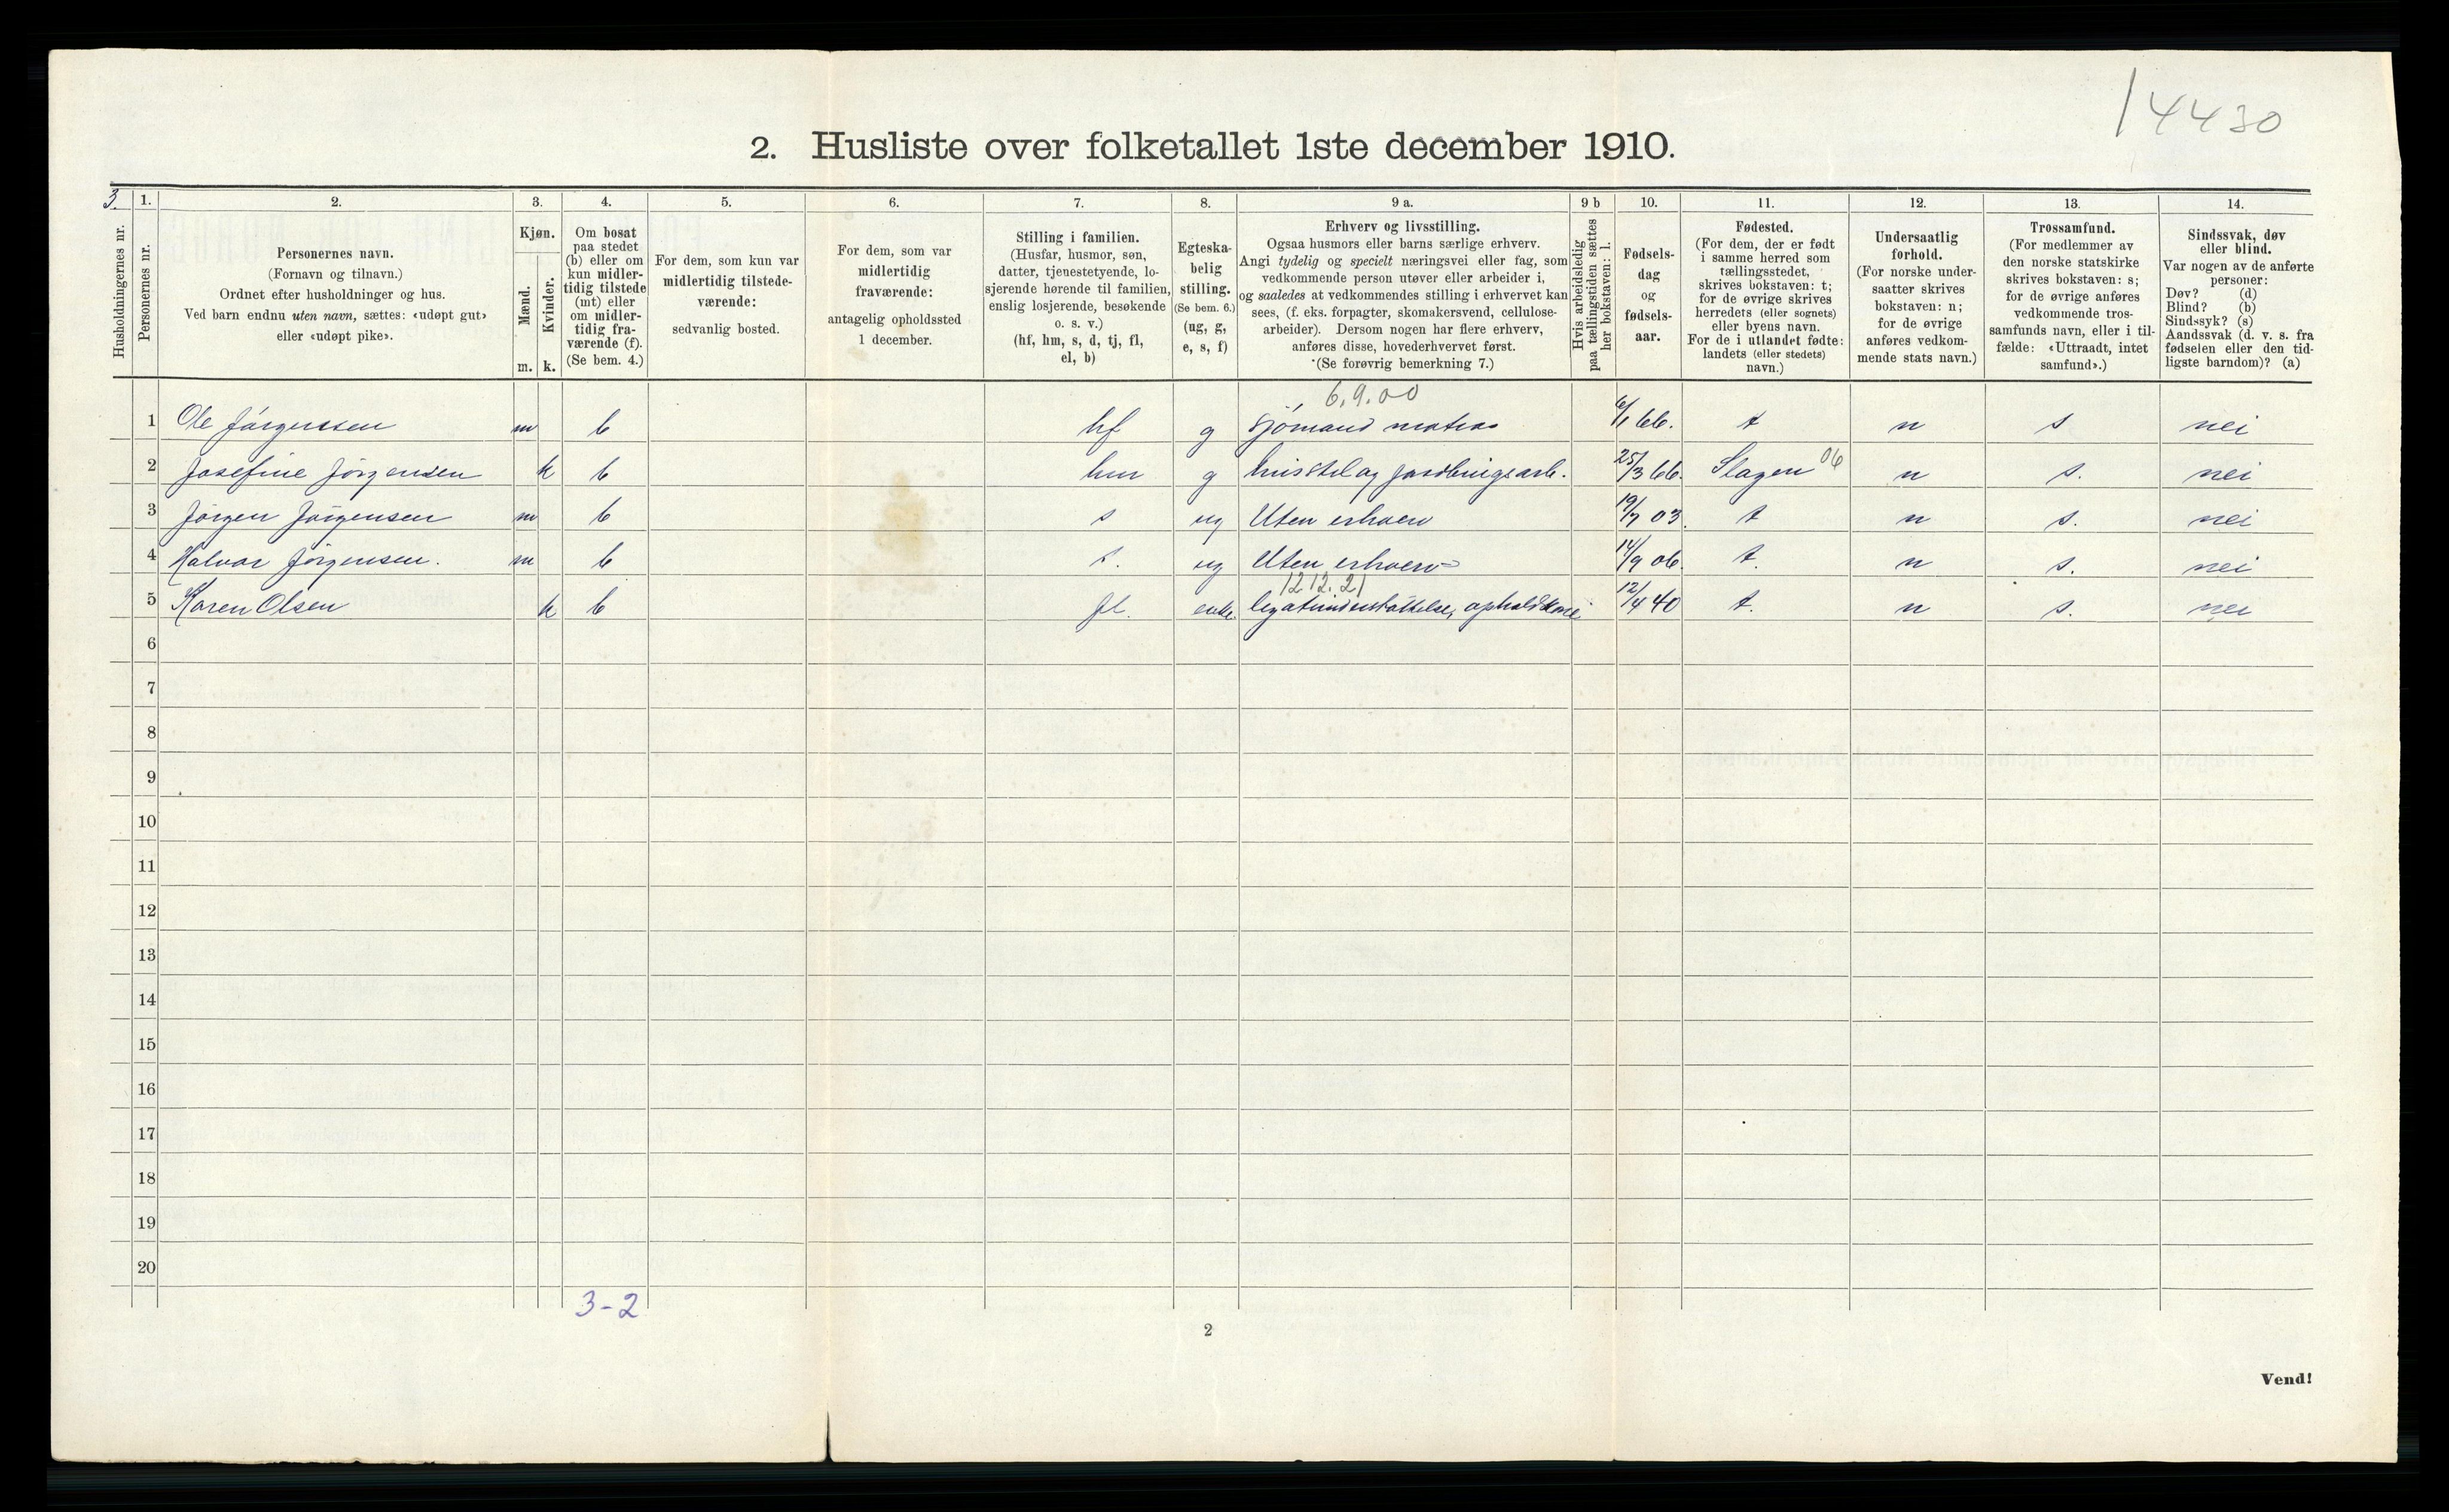 14430
2. Husliste over folketallet 1ste december 1910.
3.
1.
2.
3.
4.
5.
6.
7.
8.
9 a.
9 b
10.
11.
12.
13.
14.
Husholdningernes nr.
Personernes nr.
Personernes navn.
(Fornavn og tilnavn.)
Ordnet efter husholdninger og hus.
Ved barn endnu uten navn, sættes: «udøpt gut»
eller «udøpt pike».
Kjøn.
Mænd.
Kvinder.
m. k.
Om bosat
paa stedet
(b) eller om
kun midler-
tidig tilstede
(mt) eller
om midler-
tidig fra-
værende (f).
(Se bem. 4.)
For dem, som kun var
midlertidig tilstede-
værende:
sedvanlig bosted.
For dem, som var
midlertidig
fraværende:
antagelig opholdssted
1 december.
Stilling i familien.
(Husfar, husmor, søn,
datter, tjenestetyende, lo-
sjerende hørende til familien,
enslig losjerende, besøkende
o. s. v.)
(hf, hm, s, d, tj, fl,
el, b)
Egteska-
belig
stilling.
(Se bem. 6.)
(ug, g,
e, s, f)
Erhverv og livsstilling.
Ogsaa husmors eller barns særlige erhverv.
Angi tydelig og specielt næringsvei eller fag, som
vedkommende person utøver eller arbeider i,
og saaledes at vedkommendes stilling i erhvervet kan
sees, (f. eks. forpagter, skomakersvend, cellulose-
arbeider). Dersom nogen har flere erhverv,
anføres disse, hovederhvervet først.
(Se forøvrig bemerkning 7.)
Hvis arbeidsledig
paa tællingstiden sættes
her bokstaven: l.
Fødsels-
dag
og
fødsels-
aar.
Fødested.
(For dem, der er født
i samme herred som
tællingsstedet,
skrives bokstaven: t;
for de øvrige skrives
herredets (eller sognets)
eller byens navn.
For de i utlandet fødte:
landets (eller stedets)
navn.)
Undersaatlig
forhold.
(For norske under-
saatter skrives
bokstaven: n;
for de øvrige
anføres vedkom-
mende stats navn.)
Trossamfund.
(For medlemmer av
den norske statskirke
skrives bokstaven: s;
for de øvrige anføres
vedkommende tros-
samfunds navn, eller i til-
fælde: «Uttraadt, intet
samfund».)
Sindssvak, døv
eller blind.
Var nogen av de anførte
personer:
Døv? (d)
Blind? (b)
Sindssyk? (s)
Aandssvak (d. v. s. fra
fødselen eller den tid-
ligste barndom)? (a)
6.9.00
1 Ole Jörgenssen m b hf g sjömand matros 6/1 66. t n s nei
2 Josefine Jörgensen k b hm g husstel og jordbrugsarb. 25/3 66. Slagen 06 n s. nei
3 Jörgen Jörgensen m b s ug Uten erhverv 19/7 03. t n s. nei
4 Halvor Jörgensen. m b s. ug Uten erhverv 14/9 06. t. n s. nei
12 12.21
5 Karen Olsen k b fl. enke. legatunderstöttelse, opholdskone 12/4 40 t. n s. nei
6
7
8
9
10
11
12
13
14
15
16
17
18
19
20
3-2
2
Vend!